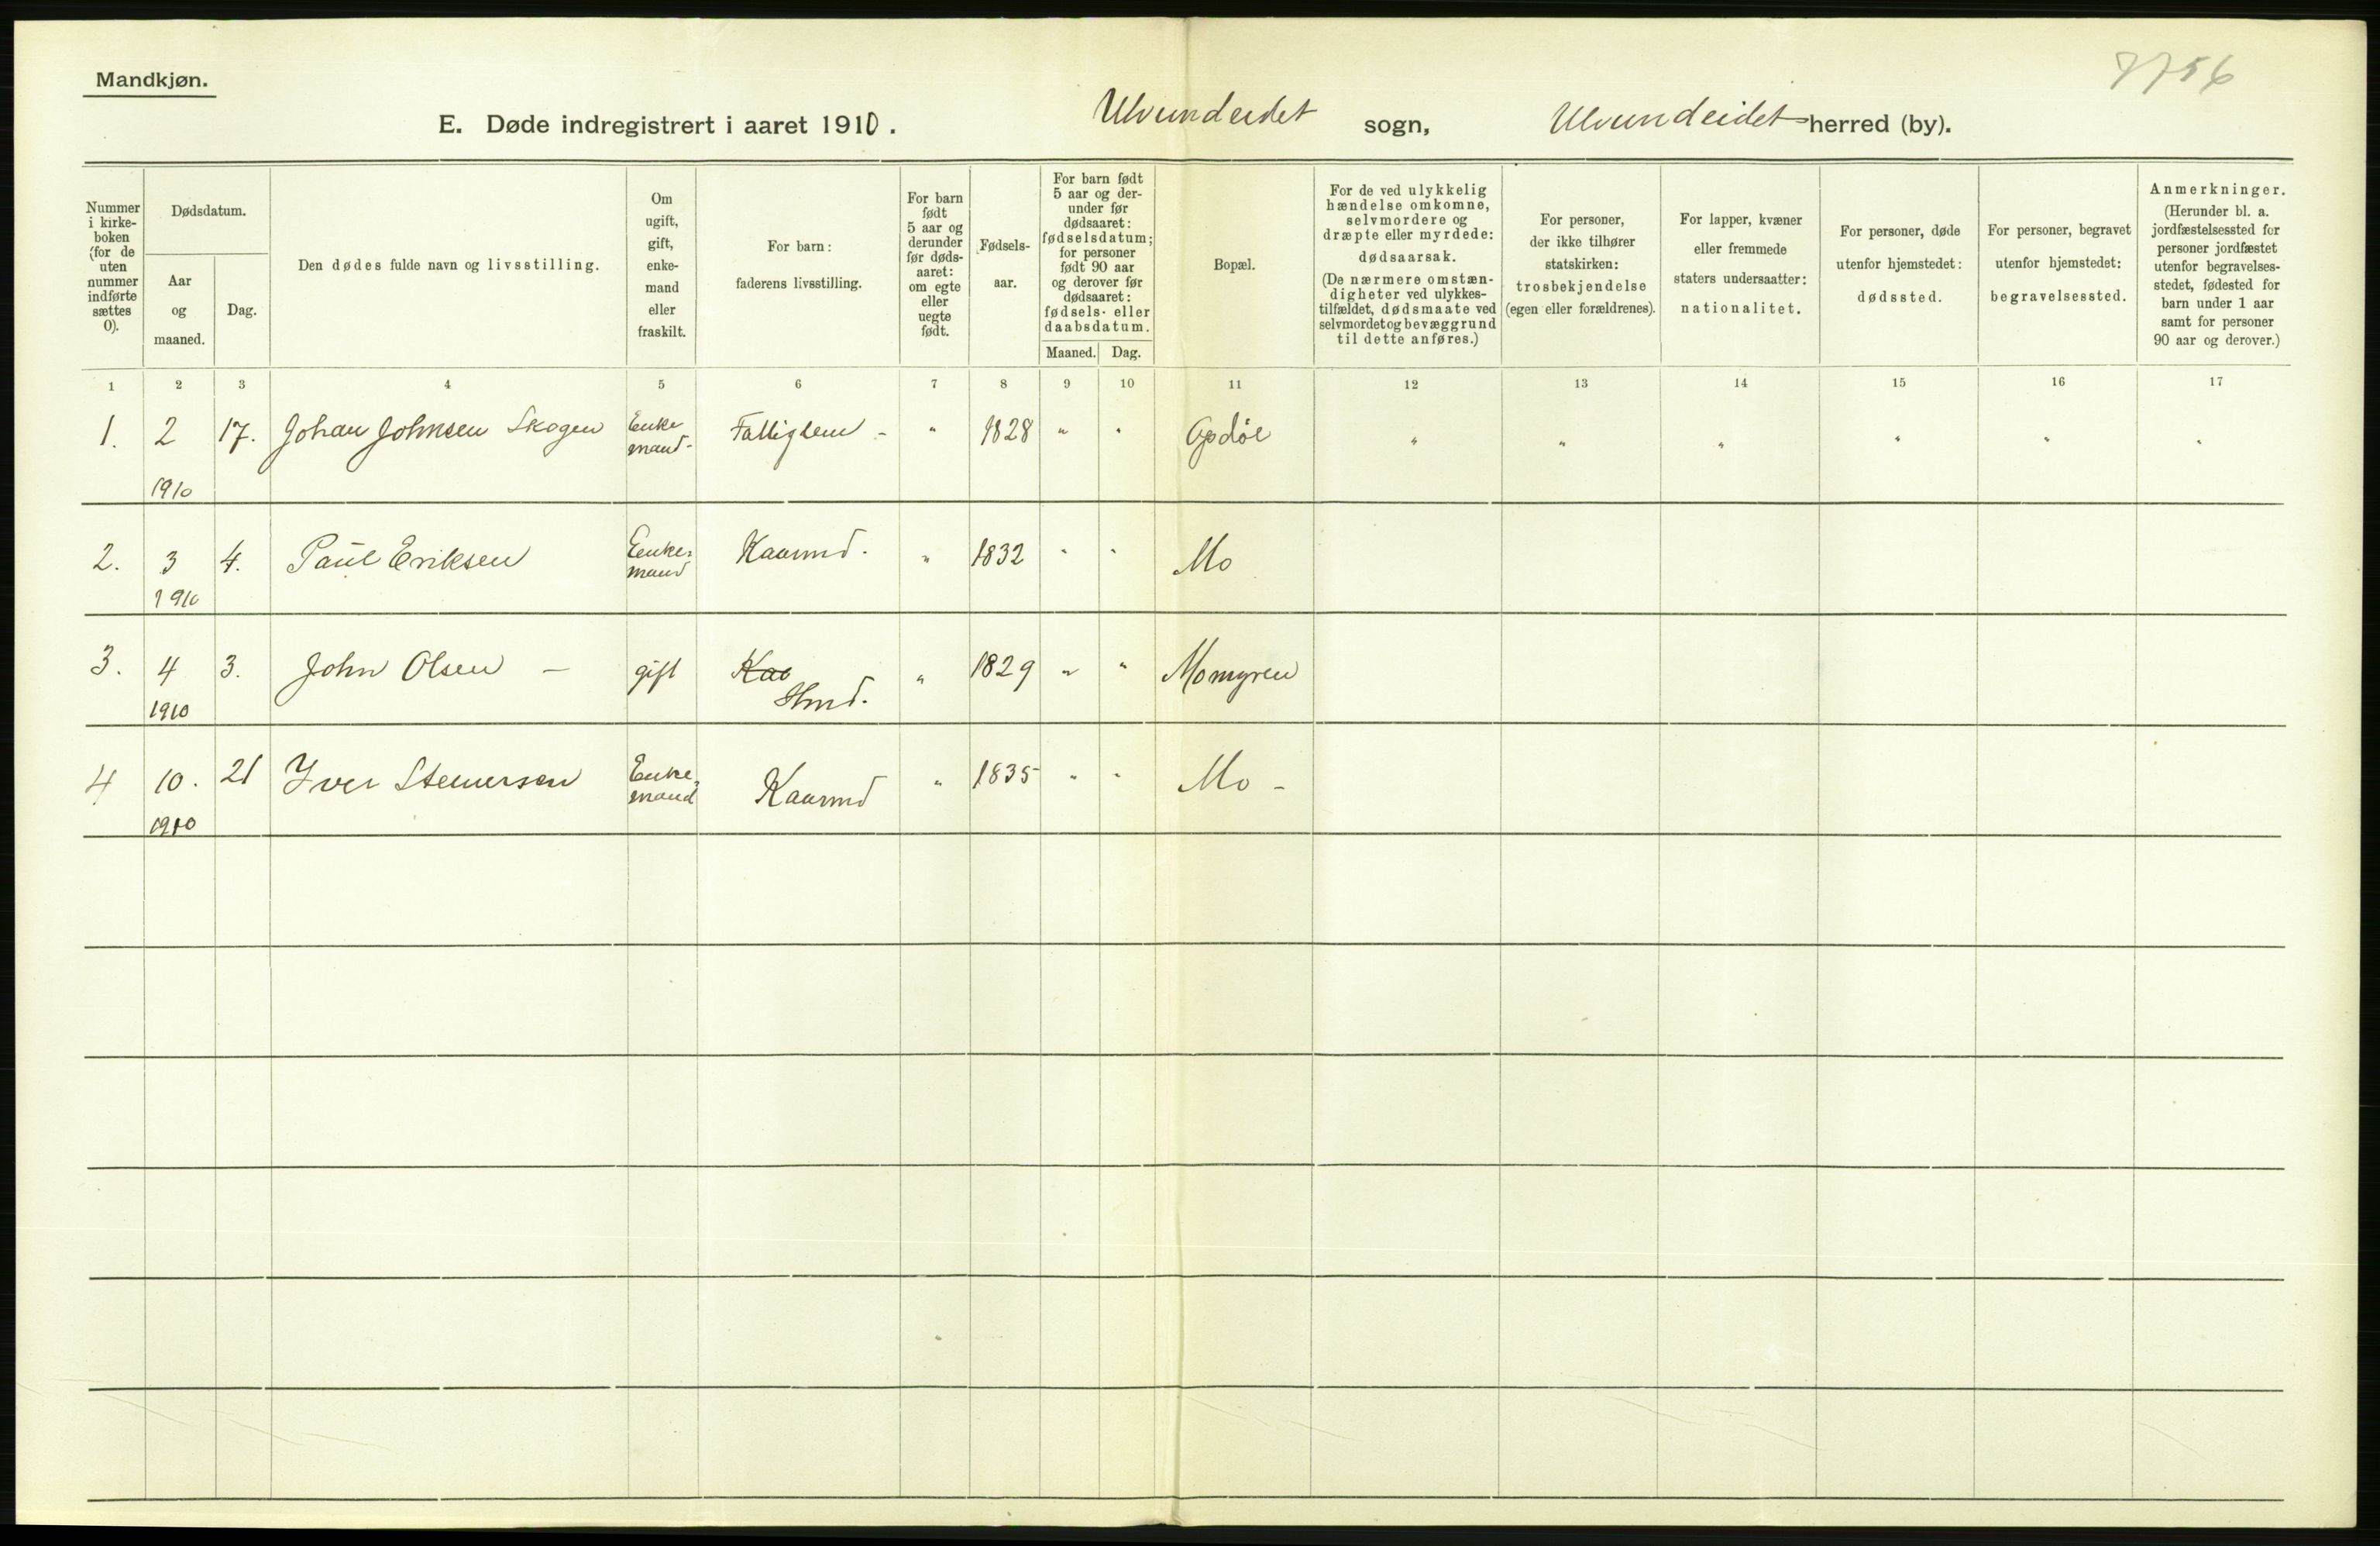 Mandkjøn.
7756
E. Døde indregistrert i aaret 1910. Ulvundeidet sogn, Ulvundeidet herred (by).
Nummer i kirke-boken (for de uten nummer indførte sættes 0).
Dødsdatum.
Aar og maaned.
Dag.
Den dødes fulde navn og livsstilling.
Om ugift, gift, enke-mand eller fraskilt.
For barn: faderens livsstilling.
For barn født 5 aar og derunder før døds-aaret: om egte eller uegte født.
Fødsels-aar.
For barn født 5 aar og der-under før dødsaaret: fødselsdatum; for personer født 90 aar og derover før dødsaaret: fødsels- eller daabsdatum.
Maaned. Dag.
Bopæl.
For de ved ulykkelig hændelse omkomne, selvmordere og dræpte eller myrdede: dødsaarsak.
(De nærmere omstæn-digheter ved ulykkes-tilfældet, dødsmaate ved selvmordet og bevæggrund til dette anføres.)
For personer, der ikke tilhører statskirken: trosbekjendelse (egen eller forældrenes).
For lapper, kvæner eller fremmede staters undersaatter: nationalitet.
For personer, døde utenfor hjemstedet: dødssted.
For personer, begravet utenfor hjemstedet: begravelsessted.
Anmerkninger.
(Herunder bl. a. jordfæstelsessted for personer jordfæstet utenfor begravelses-stedet, fødested for barn under 1 aar samt for personer 90 aar og derover.)
1 2 3 4 5 6 7 8 9 10 11 12 13 14 15 16 17
1. 2 1910 17. Johan Johnsen Skogen Enke mand - Fattiglem - " 1828 " " Opdøl " " " " " "
2. 3 1910 4. Paul Eriksen Enke-mand Kaarmd. " 1832 " " Mo
3. 4 1910 3. John Olsen - gift Kaa Hmd. " 1829 " " Momyren
4 10. 1910 21 Iver Steinersen Enke-mand Kaarmd " 1835 " " Mo -